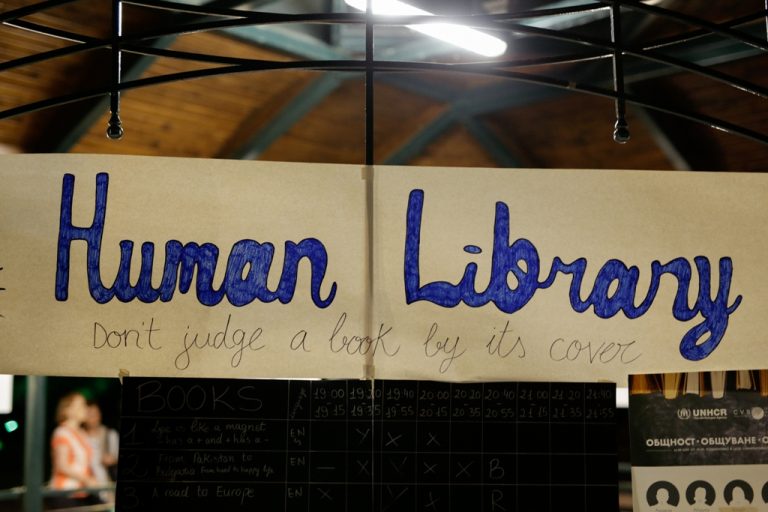 Human Library
Don't judge a book by its cover
BOOKS 19:00 19:20 19:40 20:00 20:20 20:40 21:00 21:20 21:40
19:15 19:35 19:55 20:15 20:35 20:55 21:15 21:35 21:55
1 Life is like a magnet EN
- has a + and + has a -
2 From Pakistan to EN
Bulgaria From hard to happy life
3 A road to Europe EN
UNHCR CVS
ОБЩНОСТ · ОБЩУВАНЕ ·